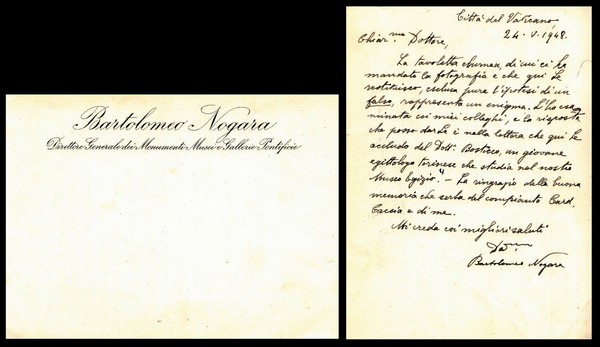 Bartolomeo Nogara
Direttore Generale dei Monumenti Musei e Gallerie Pontificie
Città del Vaticano
24-V-1948.
Chiar.mo Dottore,
La tavoletta eburnea, di cui ci ha
mandato la fotografia e che qui Le
restituisco, esclusa pure l'ipotesi di un
falso, rappresenta un enigma. L'ho esa-
minata coi miei colleghi, e la risposta
che posso darLe è nella lettera che qui Le
accludo del Dott. Bosticco, un giovane
egittologo torinese che studia nel nostro
Museo Egizio". - La ringrazio della buona
memoria che serba del compianto Card.
Caccia e di me.
Mi creda coi migliori saluti
Bartolomeo Nogara